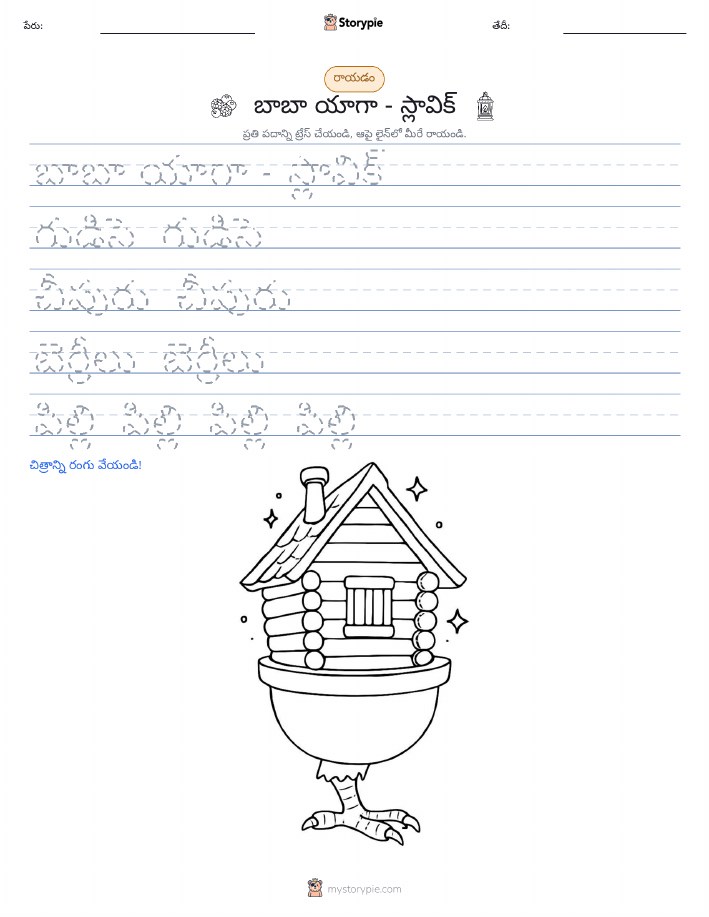 పేరు:
Storypie
తేదీ:
రాయడం
బాబా యాగా - స్లావిక్
ప్రతి పదాన్ని ట్రేస్ చేయండి, ఆపై లైన్‌లో మీరే రాయండి.
బాబా యాగా - స్లావిక్
గుడిసె గుడిసె
చీపురు చీపురు
బెర్రీలు బెర్రీలు
పిల్లి పిల్లి పిల్లి పిల్లి
చిత్రాన్ని రంగు వేయండి!
mystorypie.com